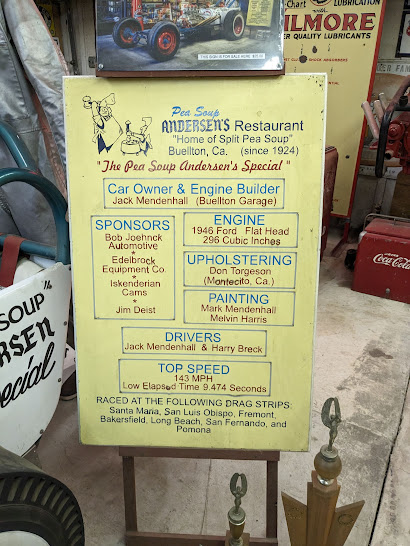 THIS SIGN IS FOR SALE HERE
Chart
LUBRICATION
with
ILMORE
ER QUALITY LUBRICANTS
Pea Soup
ANDERSEN'S Restaurant
"Home of Split Pea Soup"
Buellton, Ca. (since 1924)
"The Pea Soup Andersen's Special"
Car Owner & Engine Builder
Jack Mendenhall (Buellton Garage)
SPONSORS
Bob Joehnck
Automotive
★
Edelbrock
Equipment Co.
★
Iskenderian
Cams
★
Jim Deist
ENGINE
1946 Ford Flat Head
296 Cubic Inches
UPHOLSTERING
Don Torgeson
(Montecito, Ca.)
PAINTING
Mark Mendenhall
Melvin Harris
DRIVERS
Jack Mendenhall & Harry Breck
TOP SPEED
143 MPH
Low Elapsed Time 9.474 Seconds
RACED AT THE FOLLOWING DRAG STRIPS:
Santa Maria, San Luis Obispo, Fremont,
Bakersfield, Long Beach, San Fernando, and
Pomona
SOUP
RSEN
ecial
Coca-Cola